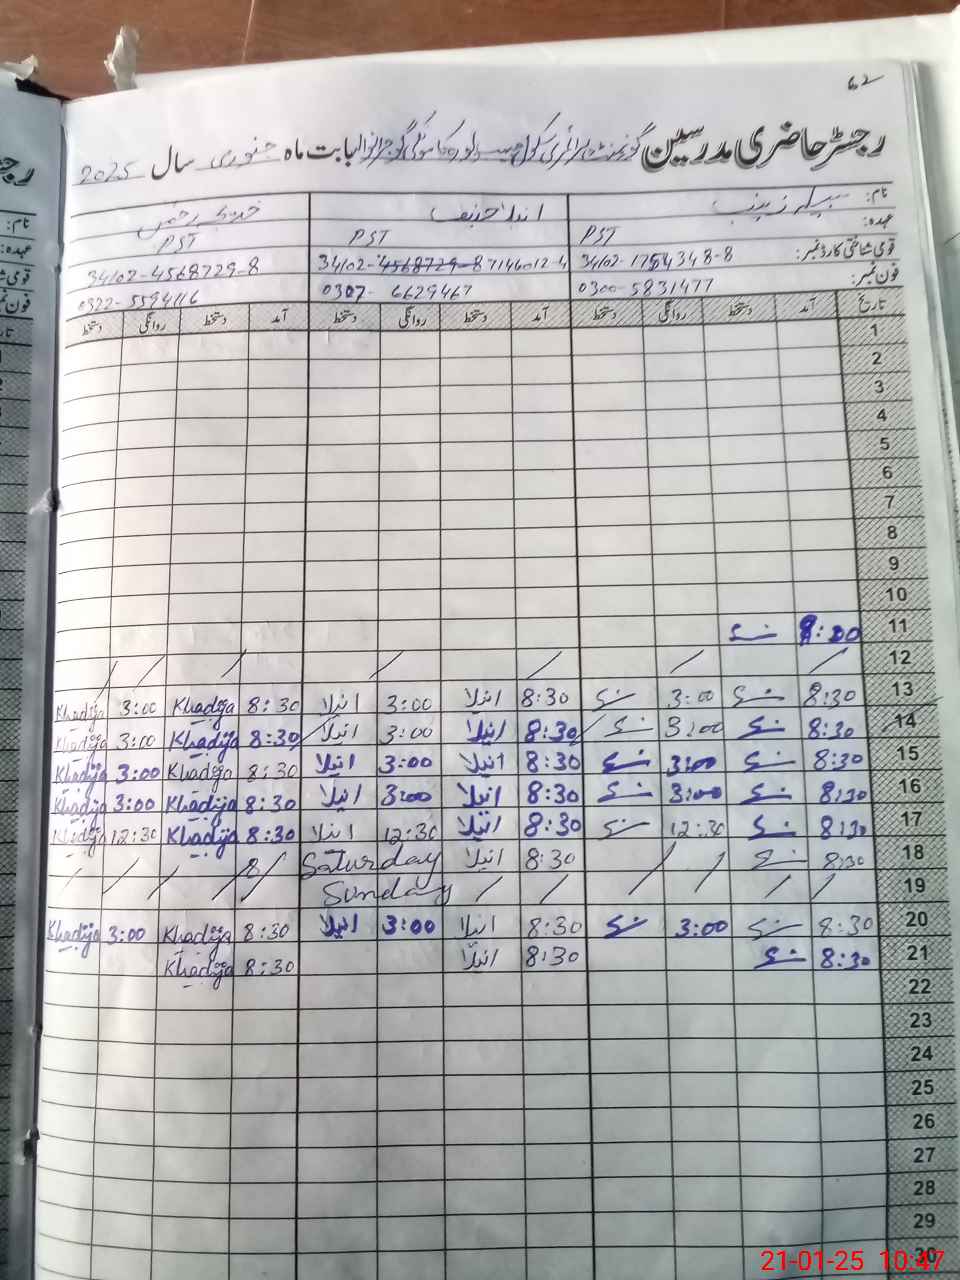 62
رجسٹر حاضری مدرسین گورنمنٹ پرائمری سکول کامونکی گوجرانوالہ بابت ماہ جنوری سال 2025
نام: زینب انیلا حنیف خدیجہ رحمٰن
عہدہ: PST PST PST
قومی شناختی کارڈ نمبر: 34102-1754348-8 34102-4568729-8 7146012-4 34102-4568729-8
فون نمبر: 0300-5831477 0307-6629467 0322-5594116
تاریخ آمد دستخط روانگی دستخط آمد دستخط روانگی دستخط آمد دستخط روانگی دستخط
1
2
3
4
5
6
7
8
9
10
11 8:00
12
13 8:30 3:00 8:30 انیلا 3:00 انیلا 8:30 Khadija 3:00 Khadija
14 8:30 3:00 8:30 انیلا 3:00 انیلا 8:30 Khadija 3:00 Khadija
15 8:30 3:00 8:30 انیلا 3:00 انیلا 8:30 Khadija 3:00 Khadija
16 8:30 3:00 8:30 انیلا 3:00 انیلا 8:30 Khadija 3:00 Khadija
17 8:30 12:30 8:30 انیلا 12:30 انیلا 8:30 Khadija 12:30 Khadija
18 8:30 8:30 انیلا Saturday 8
19 Sunday
20 8:30 3:00 8:30 انیلا 3:00 انیلا 8:30 Khadija 3:00 Khadija
21 8:30 8:30 انیلا 8:30 Khadija
22
23
24
25
26
27
28
29
30
21-01-25 10:47